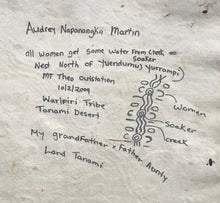 Audrey Napanangka Martin
all women get some water from Creek
Soaker
Nest North of Yuendumu) Yurrampi)
MT Theo Outstation
10/2/2009
Warlpiri Tribe
Tanami Desert
Women
Soaker
creek
My grandfather, Father Aunty
Land Tanami